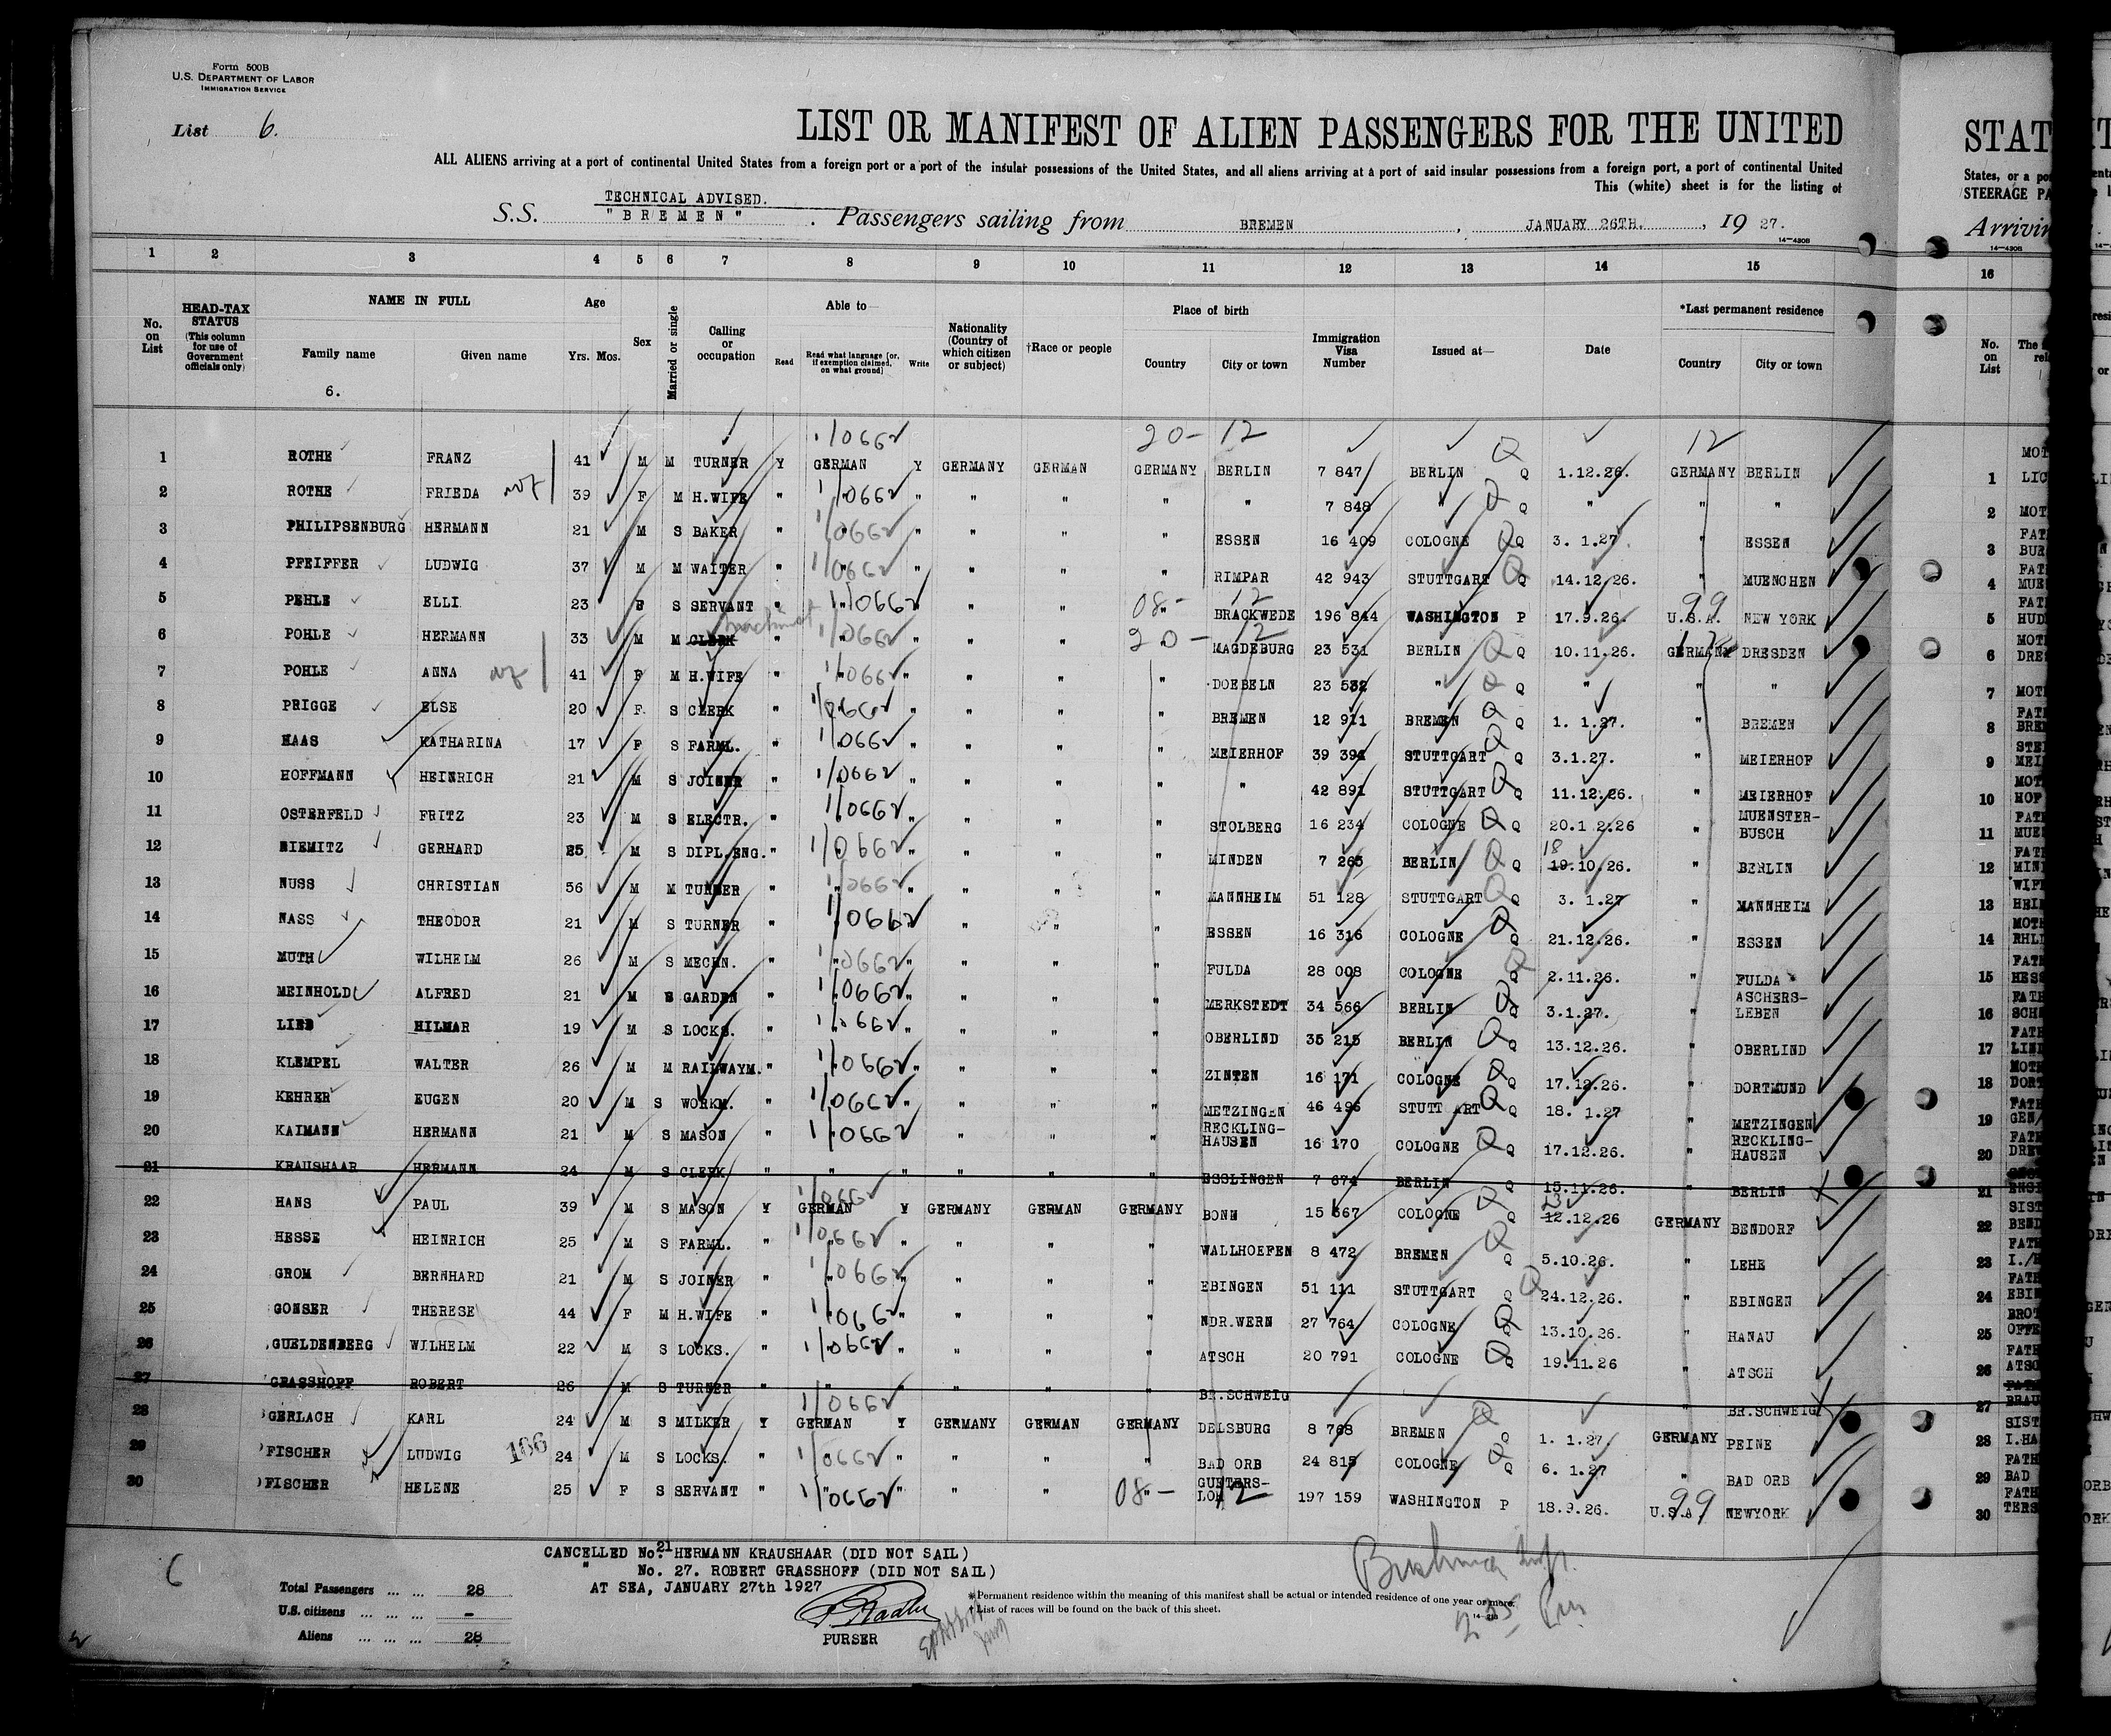 Form 500B
U.S. DEPARTMENT OF LABOR
IMMIGRATION SERVICE
List 6.
LIST OR MANIFEST OF ALIEN PASSENGERS FOR THE UNITED
ALL ALIENS arriving at a port of continental United States from a foreign port or a port of the insular possessions of the United States, and all aliens arriving at a port of said insular possessions from a foreign port, a port of continental United
This (white) sheet is for the listing of
TECHNICAL ADVISED.
S.S. "BREMEN" . Passengers sailing from BREMEN , JANUARY 26TH. , 19 27.
14—430B
1 2 3 4 5 6 7 8 9 10 11 12 13 14 15
No. on List
HEAD-TAX STATUS (This column for use of Government officials only)
NAME IN FULL
Family name Given name
6.
Age Yrs. Mos.
Sex
Married or single
Calling or occupation
Able to—
Read Read what language [or, if exemption claimed, on what ground] Write
Nationality (Country of which citizen or subject)
†Race or people
Place of birth
Country City or town
Immigration Visa Number
Issued at—
Date
*Last permanent residence
Country City or town
1/0662 20- 12 Q 12
1 ROTHE FRANZ 41 M M TURNER Y GERMAN Y GERMANY GERMAN GERMANY BERLIN 7 847 BERLIN Q 1.12.26. GERMANY BERLIN
2 ROTHE FRIEDA 39 F M H.WIFE " 1/0662 " " " " " 7 848 " Q Q " " "
3 PHILIPSENBURG HERMANN 21 M S BAKER " 1/0662 " " " " ESSEN 16 409 COLOGNE Q Q 3. 1.27. " ESSEN
4 PFEIFFER LUDWIG 37 M M WAITER " 1/0662 " " " " RIMPAR 42 943 STUTTGART Q Q 14.12.26. " MUENCHEN
5 PEHLE ELLI 23 F S SERVANT " 1/0662 " " 08- " 12 BRACKWEDE 196 844 WASHINGTON P 17.9.26. U.S.A. 99 NEW YORK
6 POHLE HERMANN 33 M M CLERK " 1/0662 " " 20- 12 MAGDEBURG 23 531 BERLIN Q Q 10.11.26. GERMANY 12 DRESDEN
7 POHLE ANNA 41 F M H.WIFE " 1/0662 " " " " DOEBELN 23 532 " Q Q " " "
8 PRIGGE ELSE 20 F. S CLERK " 1/0662 " " " " BREMEN 12 911 BREMEN Q Q 1. 1.27. " BREMEN
9 HAAS KATHARINA 17 F S FARML. " 1/0662 " " " " MEIERHOF 39 394 STUTTGART Q Q 3.1.27. " MEIERHOF
10 HOFFMANN HEINRICH 21 M S JOINER " 1/0662 " " " " " 42 891 STUTTGART Q Q 11.12.26. " MEIERHOF
11 OSTERFELD FRITZ 23 M S ELECTR. " 1/0662 " " " " STOLBERG 16 234 COLOGNE Q Q 20.1 2.26 " MUENSTER-BUSCH
12 NIEMITZ GERHARD 25 M S DIPL.ENG. " 1/0662 " " " " MINDEN 7 265 BERLIN Q Q 18 19.10.26. " BERLIN
13 NUSS CHRISTIAN 56 M M TURNER " 1/0662 " " " " MANNHEIM 51 128 STUTTGART Q Q 3. 1.27 " MANNHEIM
14 NASS THEODOR 21 M S TURNER " 1/0662 " " " " ESSEN 16 316 COLOGNE Q Q 21.12.26. " ESSEN
15 MUTH WILHELM 26 M S MECHN. " 1/0662 " " " " FULDA 28 008 COLOGNE Q Q 2.11.26. " FULDA
16 MEINHOLD ALFRED 21 M S GARDEN " 1/0662 " " " " MERKSTEDT 34 566 BERLIN Q Q 3.1.27. " ASCHERS-LEBEN
17 LIEB HILMAR 19 M S LOCKS. " 1/0662 " " " " OBERLIND 35 215 BERLIN Q Q 13.12.26. " OBERLIND
18 KLEMPEL WALTER 26 M M RAILWAYM. " 1/0662 " " " " ZINTEN 16 171 COLOGNE Q Q 17.12.26. " DORTMUND
19 KEHRER EUGEN 20 M S WORKM. " 1/0662 " " " " METZINGEN 46 496 STUTT ART Q Q 18. 1.27 " METZINGEN
20 KAIMANN HERMANN 21 M S MASON " 1/0662 " " " " RECKLING-HAUSEN 16 170 COLOGNE Q Q 17.12.26. " RECKLING-HAUSEN
21 KRAUSHAAR HERMANN 24 M S CLERK " " " " " " ESSLINGEN 7 674 BERLIN Q 15.11.26. " BERLIN
22 HANS PAUL 39 M S MASON Y 1/0662 GERMAN Y GERMANY GERMAN GERMANY BONN 15 667 COLOGNE Q Q 13 12.12.26 GERMANY BENDORF
23 HESSE HEINRICH 25 M S FARML. " 1/0662 " " " " WALLHOEFEN 8 472 BREMEN Q Q 5.10.26. " LEHE
24 GROM BERNHARD 21 M S JOINER " 1/0662 " " " " EBINGEN 51 111 STUTTGART Q Q 24.12.26. " EBINGEN
25 GONSER THERESE 44 F M H.WIFE " 1/0662 " " " " NDR.WERN 27 764 COLOGNE Q Q 13.10.26. " HANAU
26 GUELDENBERG WILHELM 22 M S LOCKS. " 1/0662 " " " " ATSCH 20 791 COLOGNE Q Q 19.11.26 " ATSCH
27 GRASSHOFF ROBERT 26 M S TURNER " " " " " " BR.SCHWEIG " BR.SCHWEIG
28 GERLACH KARL 24 M S MILKER Y 1/0662 GERMAN Y GERMANY GERMAN GERMANY DELSBURG 8 768 BREMEN Q Q 1. 1.27. GERMANY PEINE
29 FISCHER LUDWIG 166 24 M S LOCKS. " 1/0662 " " " " BAD ORB 24 815 COLOGNE Q Q 6. 1.27 " BAD ORB
30 FISCHER HELENE 25 F S SERVANT " 1/0662 " " " 08- " GUETERS-LOH 12 197 159 WASHINGTON P 18.9.26. U.S.A. 99 NEWYORK
CANCELLED No. 21 HERMANN KRAUSHAAR (DID NOT SAIL)
" No. 27. ROBERT GRASSHOFF (DID NOT SAIL)
AT SEA, JANUARY 27th 1927
PURSER
Total Passengers ... ... 28
U.S. citizens ... ... ... -
Aliens ... ... ... 28
*Permanent residence within the meaning of this manifest shall be actual or intended residence of one year or more.
†List of races will be found on the back of this sheet.
STAT
States, or a po
STEERAGE PA
Arrivin
14—430B
16
No. on List
1
2
3
4
5
6
7
8
9
10
11
12
13
14
15
16
17
18
19
20
21
22
23
24
25
26
27
28
29
30